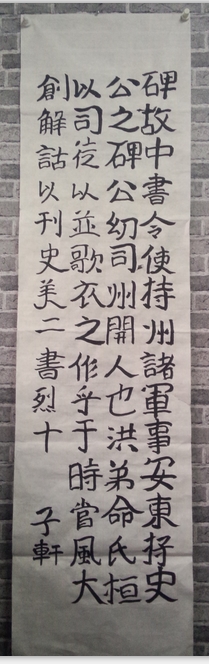 碑故中書令使持州諸軍事安東将史
公之碑公幼司州開人也洪弟命氏桓
以司徒以並歌衣之作乎于時當風大
創解詁以刊史美二書烈十
子軒